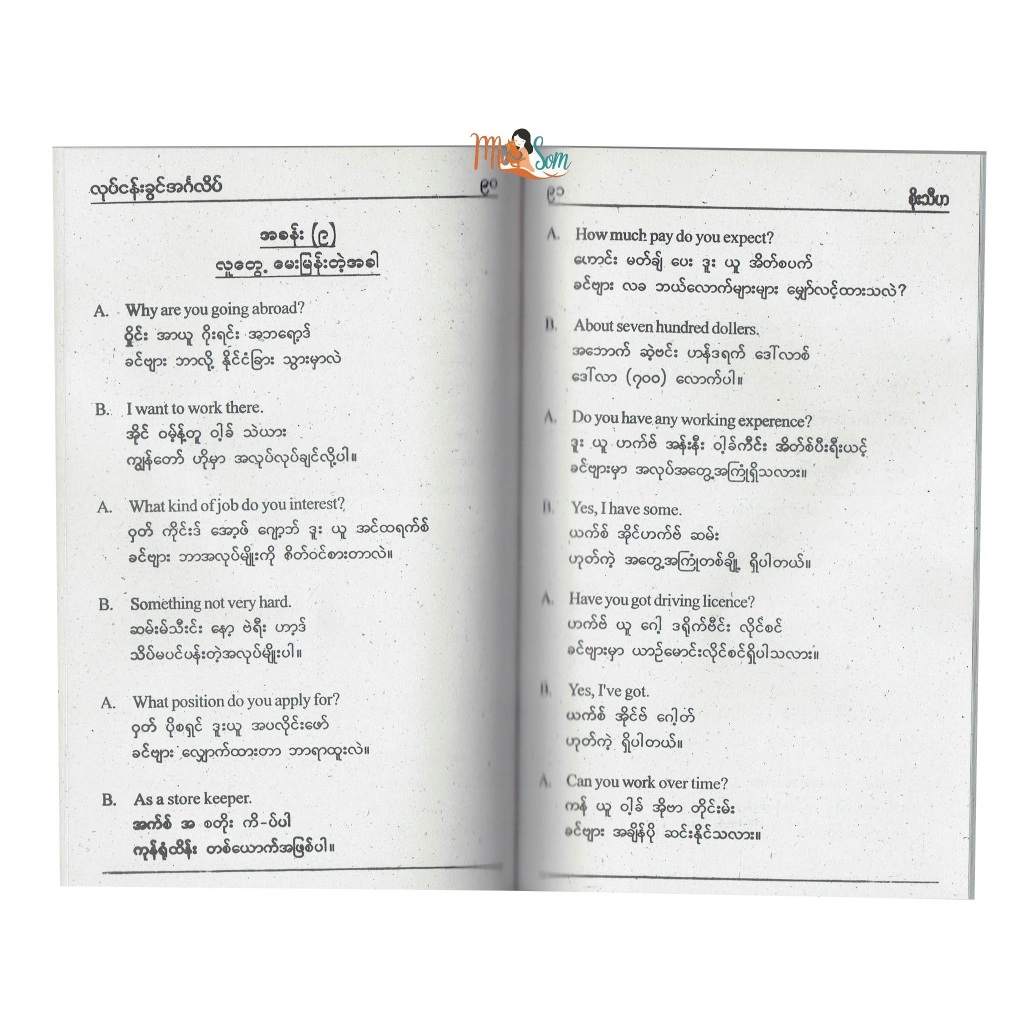 Mom Som
လုပ်ငန်းခွင်အင်္ဂလိပ်
၉၀
အခန်း (၉)
လူတွေ့ မေးမြန်းတဲ့အခါ
A. Why are you going abroad?
ဝှိုင်း အာယူ ဂိုးရင်း အဘရော့ဒ်
ခင်ဗျား ဘာလို့ နိုင်ငံခြား သွားမှာလဲ
B. I want to work there.
အိုင် ဝမ့်န့်တူ ဝါ့ခ် သဲယား
ကျွန်တော် ဟိုမှာ အလုပ်လုပ်ချင်လို့ပါ။
A. What kind of job do you interest?
ဝှတ် ကိုင်းဒ် အော့ဖ် ဂျော့ဘ် ဒူး ယူ အင်ထရက်စ်
ခင်ဗျား ဘာအလုပ်မျိုးကို စိတ်ဝင်စားတာလဲ။
B. Something not very hard.
ဆမ်းမ်သီးင်း နော့ ဗဲရီး ဟာ့ဒ်
သိပ်မပင်ပန်းတဲ့အလုပ်မျိုးပါ။
A. What position do you apply for?
ဝှတ် ပိုစရှင် ဒူးယူ အပလိုင်းဖော်
ခင်ဗျား လျှောက်ထားတာ ဘာရာထူးလဲ။
B. As a store keeper.
အက်စ် အ စတိုး ကိ-ပ်ပါ
ကုန်ရုံထိန်း တစ်ယောက်အဖြစ်ပါ။
၉၁
စိုးသီဟ
A. How much pay do you expect?
ဟောင်း မတ်ချ် ပေး ဒူး ယူ အိတ်စပက်
ခင်ဗျား လခ ဘယ်လောက်များများ မျှော်လင့်ထားသလဲ?
B. About seven hundred dollers.
အဘောက် ဆဲ့ဗင်း ဟန်ဒရက် ဒေါ်လာစ်
ဒေါ်လာ (၇၀၀) လောက်ပါ။
A. Do you have any working experence?
ဒူး ယူ ဟက်ဗ် အန်းနီး ဝါ့ခ်ကီင်း အိတ်စ်ပီးရီးယင့်
ခင်ဗျားမှာ အလုပ်အတွေ့အကြုံရှိသလား။
B. Yes, I have some.
ယက်စ် အိုင်ဟက်ဗ် ဆမ်း
ဟုတ်ကဲ့ အတွေ့အကြုံတစ်ချို့ ရှိပါတယ်။
A. Have you got driving licence?
ဟက်ဗ် ယူ ဂေါ့ ဒရိုက်ဗီင်း လိုင်စင်
ခင်ဗျားမှာ ယာဉ်မောင်းလိုင်စင်ရှိပါသလား။
B. Yes, I've got.
ယက်စ် အိုင်ဗ် ဂေါ့တ်
ဟုတ်ကဲ့ ရှိပါတယ်။
A. Can you work over time?
ကန် ယူ ဝါ့ခ် အိုဗာ တိုင်းမ်း
ခင်ဗျား အချိန်ပို ဆင်းနိုင်သလား။